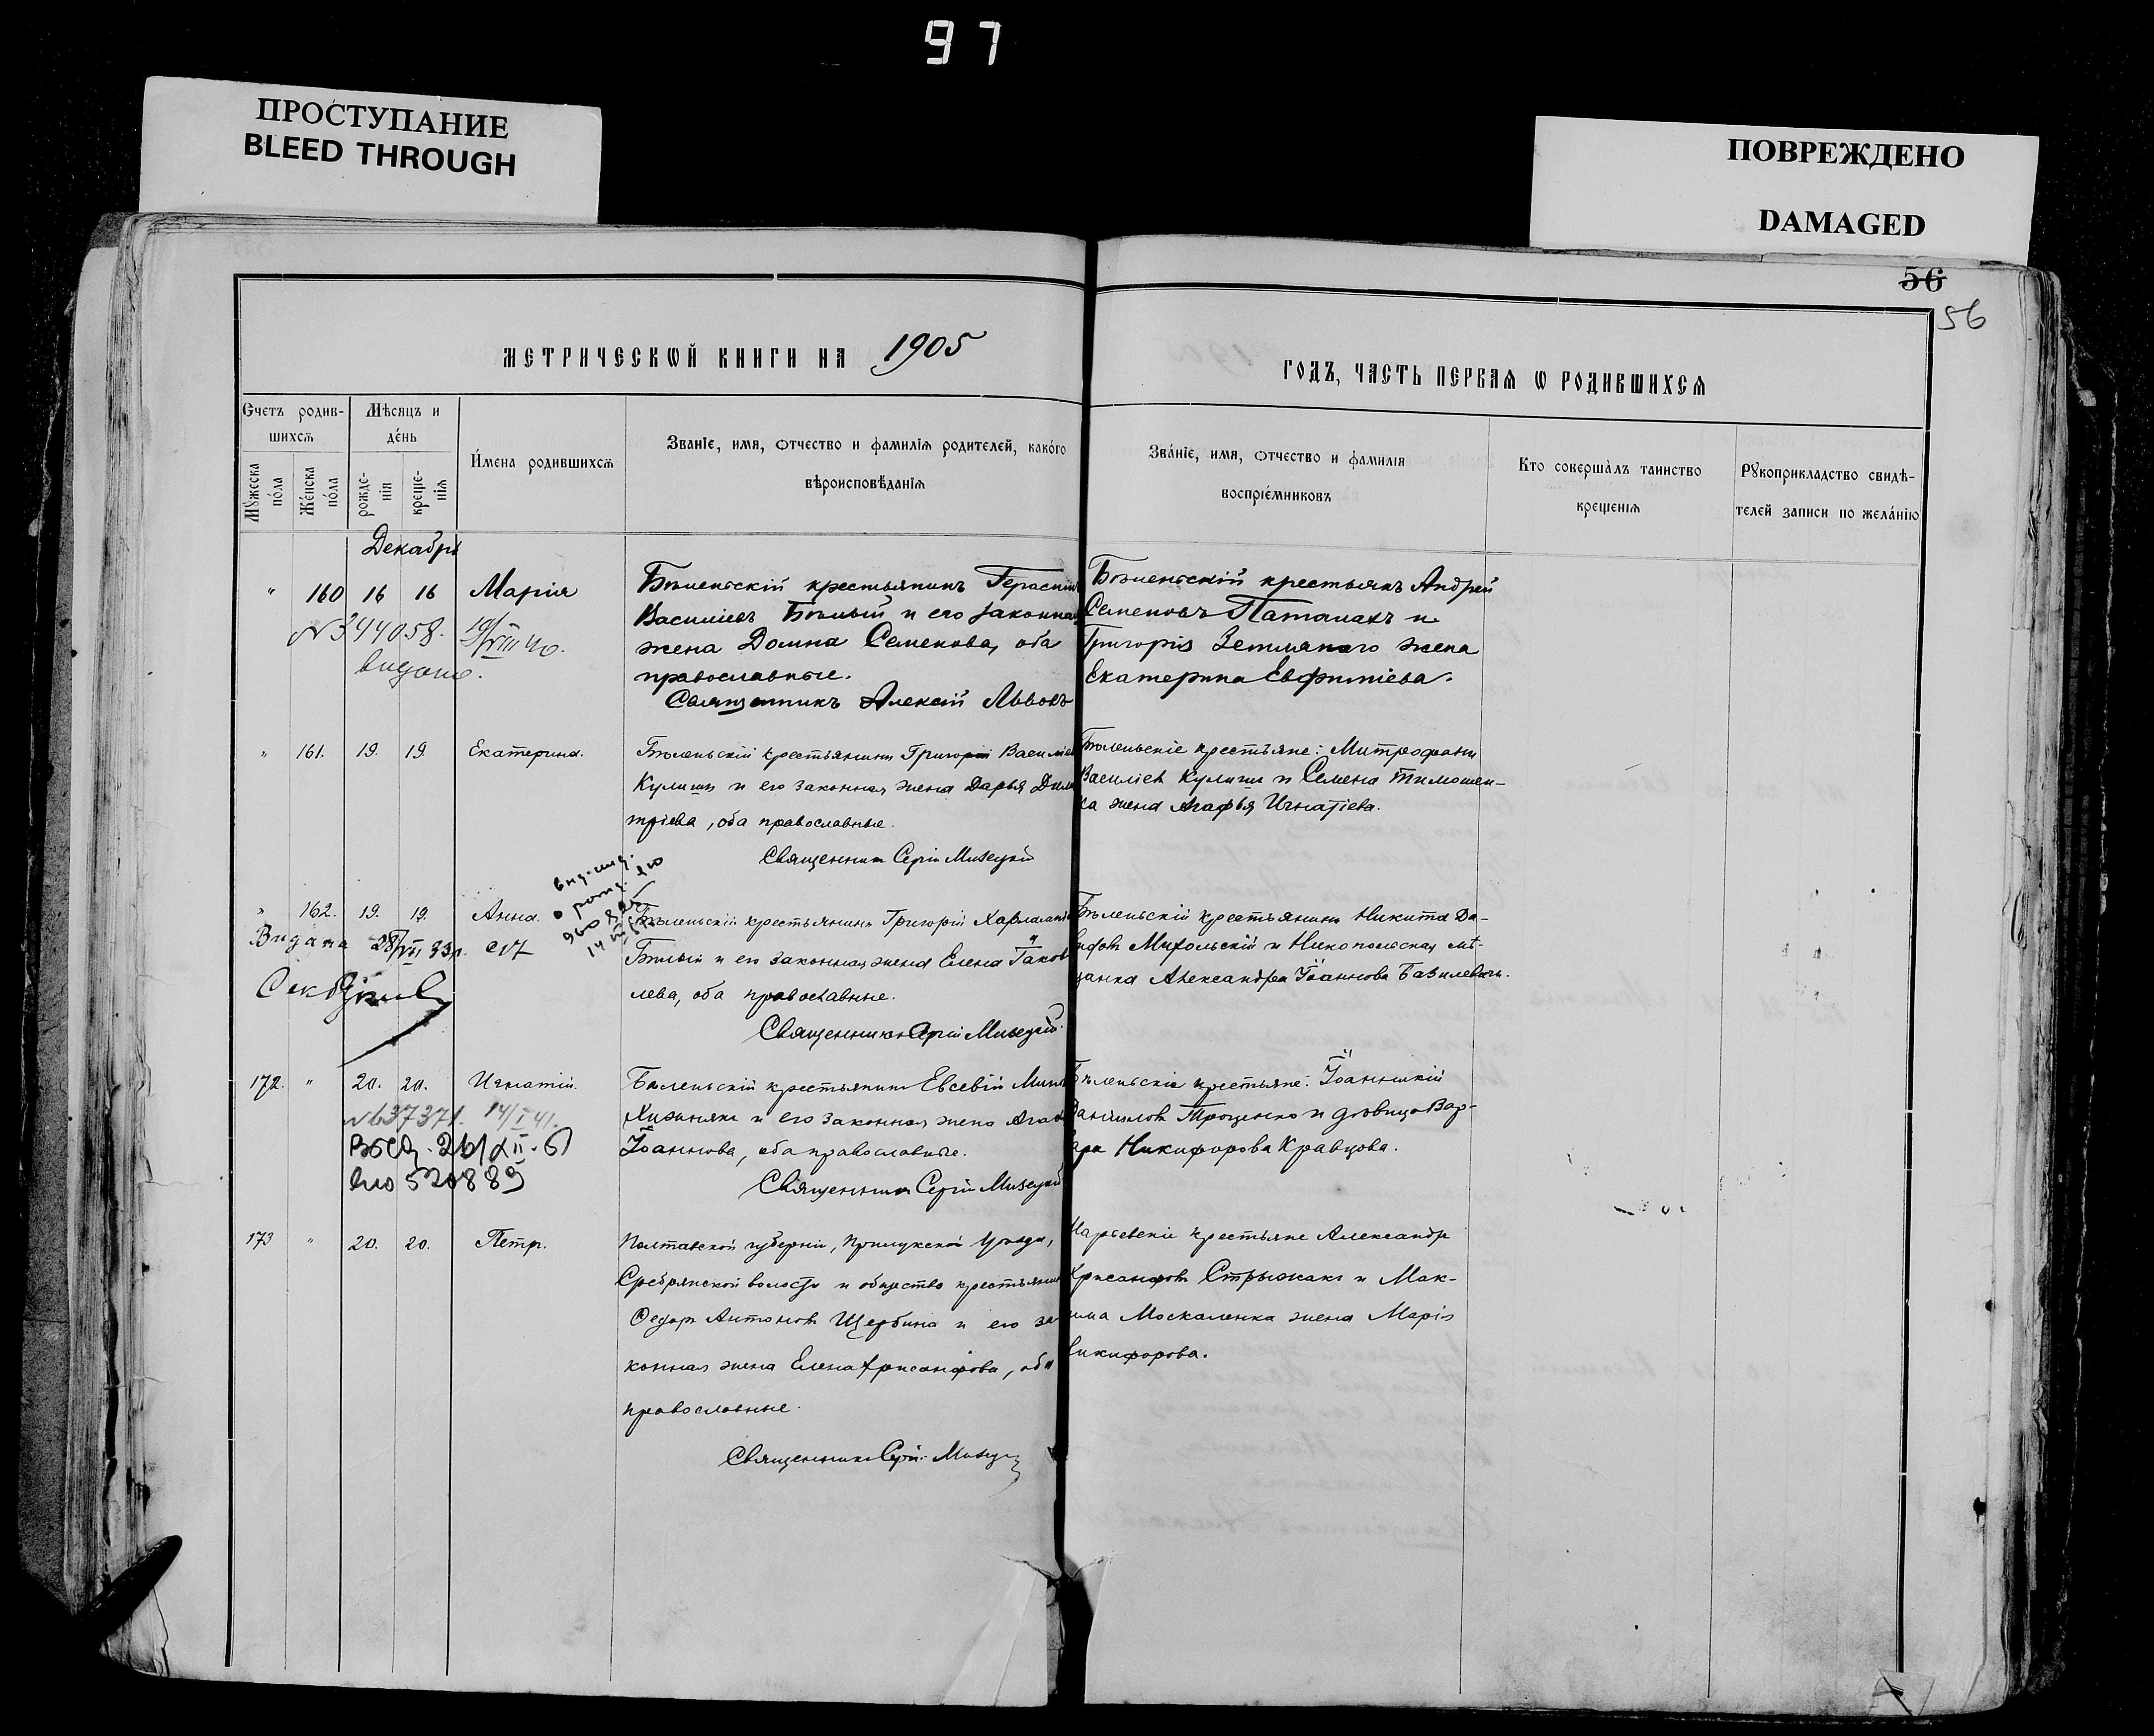 97
ПРОСТУПАНИЕ
BLEED THROUGH
ПОВРЕЖДЕНО
DAMAGED
56
56
МЕТРИЧЕСКОЙ КНИГИ НА 1905
ГОДЪ, ЧАСТЬ ПЕРВАЯ Ѡ РОДИВШИХСЯ
Счетъ родив-
шихсѧ
Мужеска
пола
Женска
пола
Мѣсяцъ и
день
рожде-
нія
креще-
нія
Имена родившихсѧ
Званіе, имя, ѻтчество и фамиліѧ родителей, какого
вѣроисповѣданіѧ
Званіе, имя, ѻтчество и фамиліѧ
воспріемниковъ
Кто совершалъ таинство
крещеніѧ
Рукоприкладство свидѣ-
телей записи по желанію
Декабрь
" 160 16 16 Марія
№344058. 19/VIII 40.
видано.
Бѣленьскій крестьянинъ Герасимъ
Василіевъ Бѣлый и его законная
жена Домна Семенова, оба
православные.
Священникъ Алексій Львовъ
Бѣленьскій крестьянъ Андрей
Семеновъ Паталахъ и
Григорія Земляного жена
Екатерина Евфиміева.
" 161. 19. 19. Екатерина.
Бѣленьскій крестьянинъ Григорій Василіев
Кулишъ и его законная жена Дарья Дим
тріева, оба православные.
Священникъ Сергій Мизецкій
Бѣленьскіе крестьяне: Митрофанъ
Василіев Кулишъ и Семена Тимошен-
ка жена Агафья Игнатіева.
" 162. 19. 19. Анна.
Видана 28/VII 33р. с17
Бѣленьскій крестьянинъ Григорій Харлампіе
Бѣлый и его законная жена Елена Іаков
лева, оба православные.
Священникъ Сергій Мизецкій.
Бѣленьскій крестьянинъ Никита Да-
видов и Никопольская мѣ-
щанка Александра Іоаннова Базилевичъ.
172. " 20. 20. Игнатій.
14/I 41.
520889
Бѣленьскій крестьянинъ Евсевій
и его законная жена Агаф
Іоаннова, оба православные.
Священникъ Сергій Мизецкій
Бѣленьскіе крестьяне: Іоанникій
Даніилов Троценко и дѣвица Вар-
вара Никифорова Кравцова.
173 " 20. 20. Петръ.
Полтавской губерніи, Прилукскаго уѣзда,
Сребрянской волости и общества крестьянин
Ѳедоръ Антонов Щербина и его за
конная жена Елена Хрисанфова, оба
православные.
Священникъ Сергій Мизецкій
Марьевскіе крестьяне Александръ
Хрисанфов Стрижакъ и Мак-
сима Москаленка жена Марія
Никифорова.